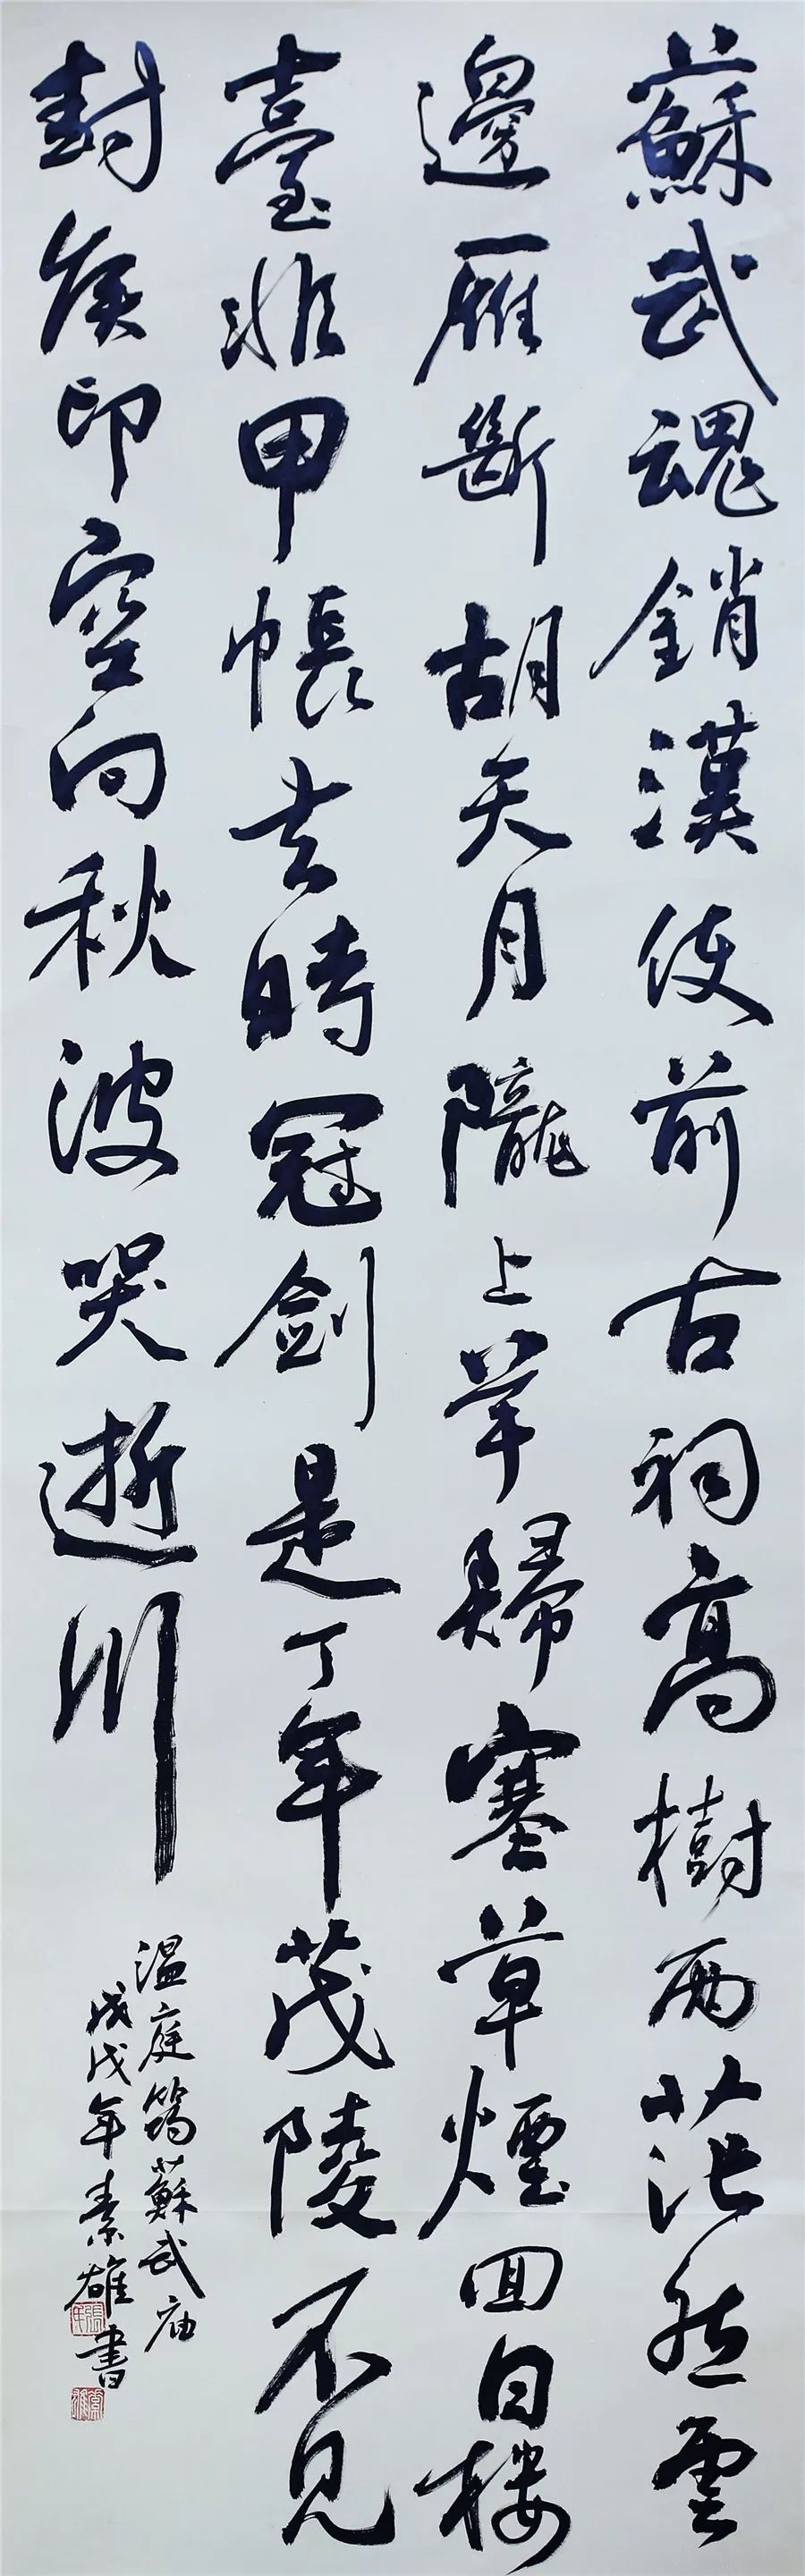 蘇武魂銷漢使前古祠高樹兩茫然雲
邊雁斷胡天月隴上羊歸塞草煙回日樓
臺非甲帳去時冠劍是丁年茂陵不見
封侯印空向秋波哭逝川
温庭筠蘇武庙
戊戌年素雄書